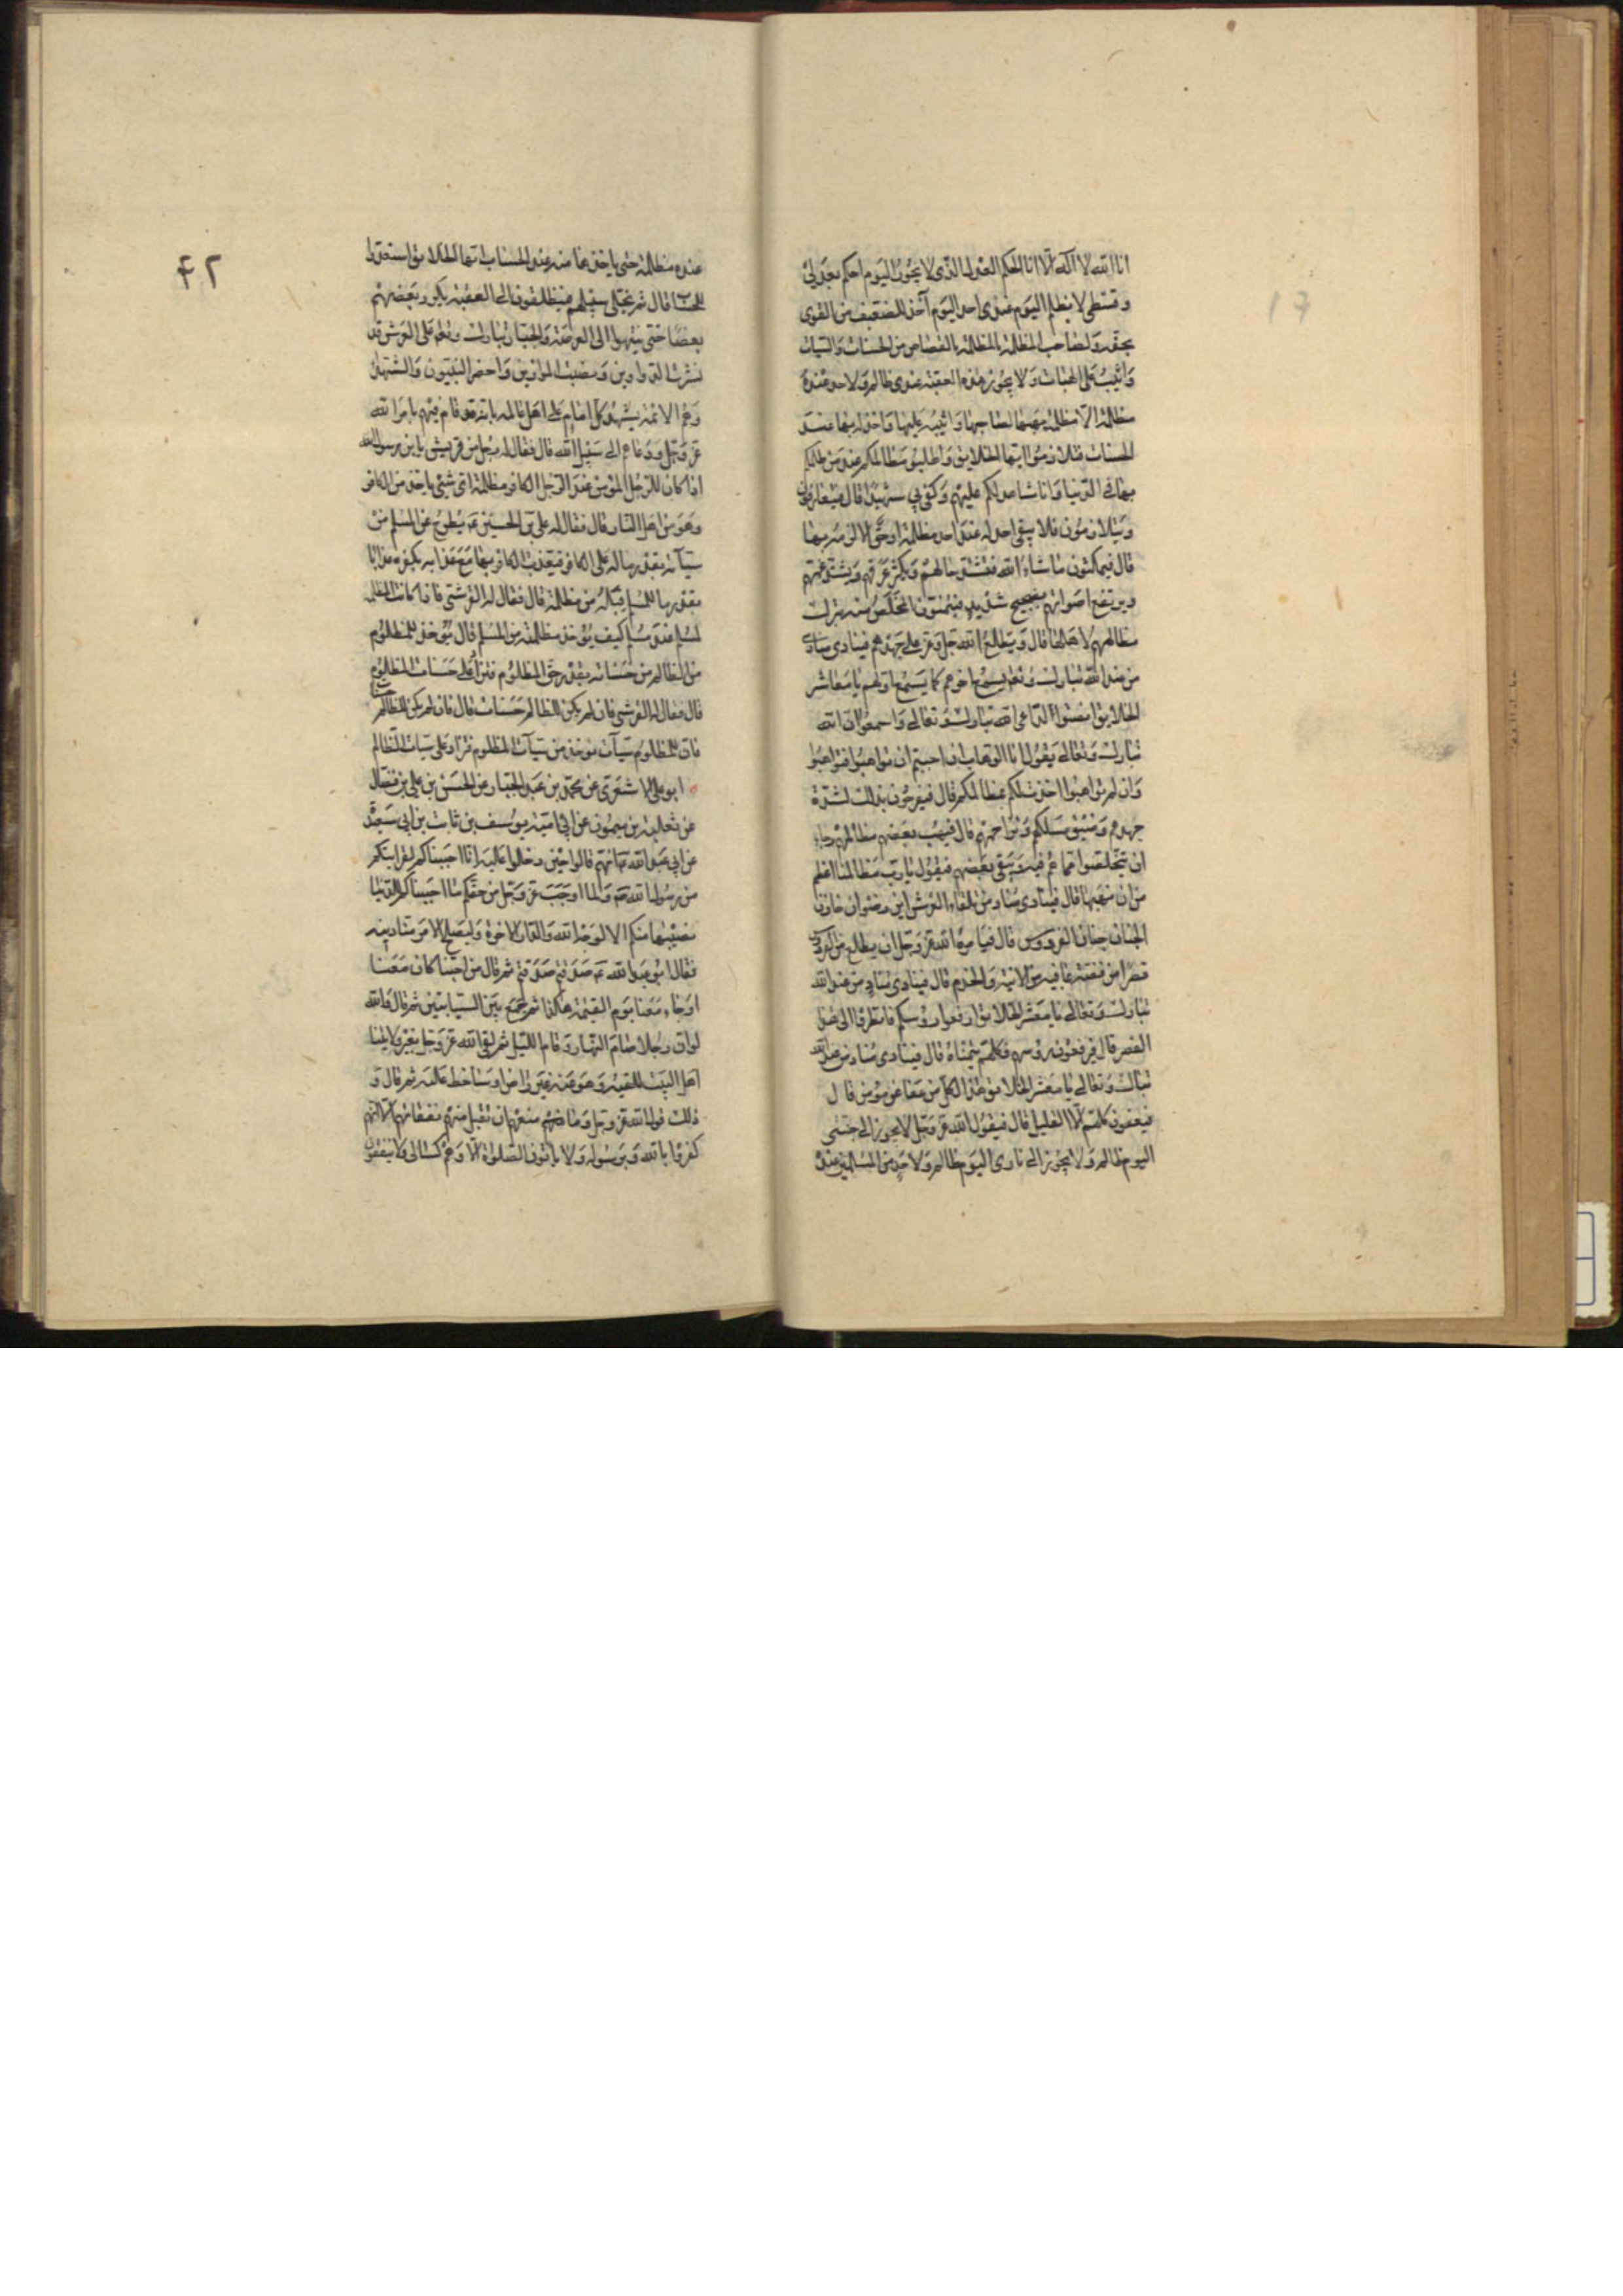 انا الله لا اله الا انا الحكم العدل الذى لا يجور اليوم احكم بعدلى
و قسطى لا يظلم اليوم عندى احد اليوم آخذ للضعيف من القوى
بحقه و لصاحب المظلمة بالمظلمة بالقصاص من الحسنات و السيات
و اثيب على الهبات و لا يجوز هذه العقبة عندى ظالم و لاحد عنده
مظلمة الا مظلمة يهبها لصاحبها و اثيبه عليها و آخذ له بها عند
الحساب فتلازموا ايها الخلايق و اطلبوا مظالمكم عند من ظلمكم
بها فى الدنيا و انا شاهد لكم عليهم و كفى بى شهيدا قال فيتعارفون
و يتلازمون فلا يبقى احد له عند احد مظلمة او حق الا لزمه بها
قال فيمكثون ما شاء الله فتشتد حالهم و يكثر عرقهم و يشتد غمهم
و يرتفع اصواتهم بضجيج شديد فيتمنون المخلص منه بترك
مظالمهم لاهلها قال و يطلع الله جل و عز على جهدهم فينادى مناد
من عند الله تبارك و تعالى يسمع آخرهم كما يسمع اولهم يا معاشر
الخلايق انصتوا لداعى الله تبارك و تعالى و اسمعوا ان الله
تبارك و تعالى يقول انا الوهاب ان احببتم ان تواهبوا فتواهبوا
و ان لم تواهبوا اخذت لكم بمظالمكم قال فيفرحون بذلك لشدة
جهدهم و ضيق مسلكهم و تزاحمهم قال فيهب بعضهم مظالمهم رجاء
ان يتخلصوا مما هم فيه و يبقى بعضهم فيقول يا رب مظالمنا اعظم
من ان نهبها قال فينادى مناد من تلقاء العرش اين رضوان خازن
الجنان جنان الفردوس قال فيامره الله عز و جل ان يطلع من الفردوس
قصرا من فضة بما فيه من الانية و الخدم قال فينادى مناد من عند الله
تبارك و تعالى يا معشر الخلايق ارفعوا روسكم فانظروا الى هذا
القصر قال فيرفعون روسهم فكلهم يتمناه قال فينادى مناد من عند الله
تبارك و تعالى يا معشر الخلايق هذا لكل من عفا عن مؤمن قال
فيعفون كلهم الا القليل قال فيقول الله عز و جل لا يجوز الى جنتى
اليوم ظالم و لا يجوز الى نارى اليوم ظالم و لاحد من المسلمين عنده
٤٢
عنده مظلمة حتى ياخذها منه عند الحساب ايها الخلايق استعدوا
للحساب قال ثم يخلى سبيلهم فينطلقون الى العقبة يكرد بعضهم
بعضا حتى ينتهوا الى العرصة و الجبار تبارك و تعالى على العرش قد
نشرت الدواوين و نصبت الموازين و احضر النبيون و الشهداء
و هم الائمة يشهد كل امام على اهل عالمه بانه قد قام فيهم بامر الله
عز و جل و دعاهم الى سبيل الله قال فقال له رجل من قريش يا ابن رسول الله
اذا كان للرجل المؤمن عند الرجل الكافر مظلمة اى شئ ياخذ من الكافر
و هو من اهل النار قال فقال له على بن الحسين ع يطرح عن المسلم من
سيآته بقدر ما له على الكافر فيعذب الكافر بها مع عذابه بكفره عذابا
بقدر ما للمسلم قبله من مظلمة قال فقال له القرشى فاذا كانت المظلمة
لمسلم عند مسلم كيف يؤخذ مظلمته من المسلم قال يؤخذ للمظلوم
من الظالم من حسناته بقدر حق المظلوم فتزاد على حسنات المظلوم
قال فقال له القرشى فان لم يكن للظالم حسنات قال فان لم يكن للظالم حسنات
فان للمظلوم سيآت يؤخذ من سيآت المظلوم فتزاد على سيات الظالم
ابو على الاشعرى عن محمد بن عبد الجبار عن الحسن بن على بن فضال
عن ثعلبة بن ميمون عن ابى امية يوسف بن ثابت بن ابى سعيدة
عن ابى عبد الله ع انهم قالوا حين دخلوا عليه انا احببناكم لقرابتكم
من رسول الله ص و لما اوجب عز و جل من حقكم ما احببناكم للدنيا
نصيبها منكم الا لوجه الله و الدار الاخرة و ليصلح لامرء منا دينه
فقال ابو عبد الله ع صدقتم صدقتم ثم قال من احبنا كان معنا
او جاء معنا يوم القيمة هكذا ثم جمع بين السبابتين ثم قال و الله
لو ان رجلا صام النهار و قام الليل ثم لقى الله عز و جل بغير ولايتنا
اهل البيت للقيه و هو عنه غير راض او ساخط عليه ثم قال و
ذلك قول الله عز و جل و ما منعهم ان تقبل منهم نفقاتهم الا انهم
كفروا بالله و برسوله و لا ياتون الصلوة الا و هم كسالى و لا ينفقون